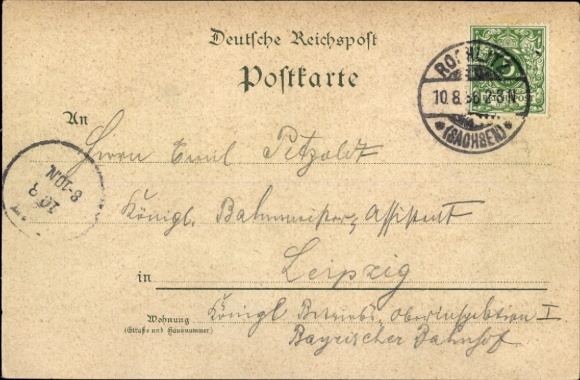 Deutsche Reichspost
Postkarte
ROCHLITZ
10.8.98 2-3N
*(SACHSEN)*
An
Herrn Emil Petzoldt
Königl. Bahnmeister-Assistent
in Leipzig
Wohnung Königl Betriebs-Oberinspektion I
(Straße und Hausnummer)
Bayrischer Bahnhof
8-10N.
10 8